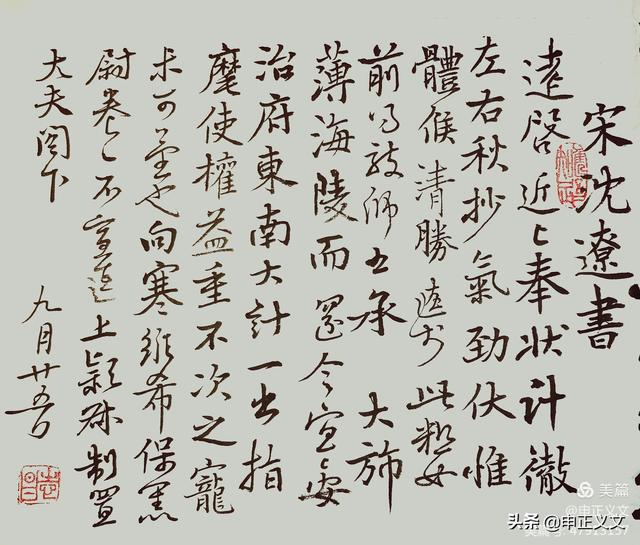 宋沈遼書
遼啓近上奉狀計徹
左右秋杪氣勁伏惟
體候清勝遼於此粗安
前得教師五承大斾
薄海陵而還今宜安
治府東南大計一出指
麾使權益重不次之寵
未可量也向寒維希保
尉卷卷不宣遼上穎叔制置
大夫閣下
九月廿五日
美篇
头条 @申正义文
美篇号: 47913137